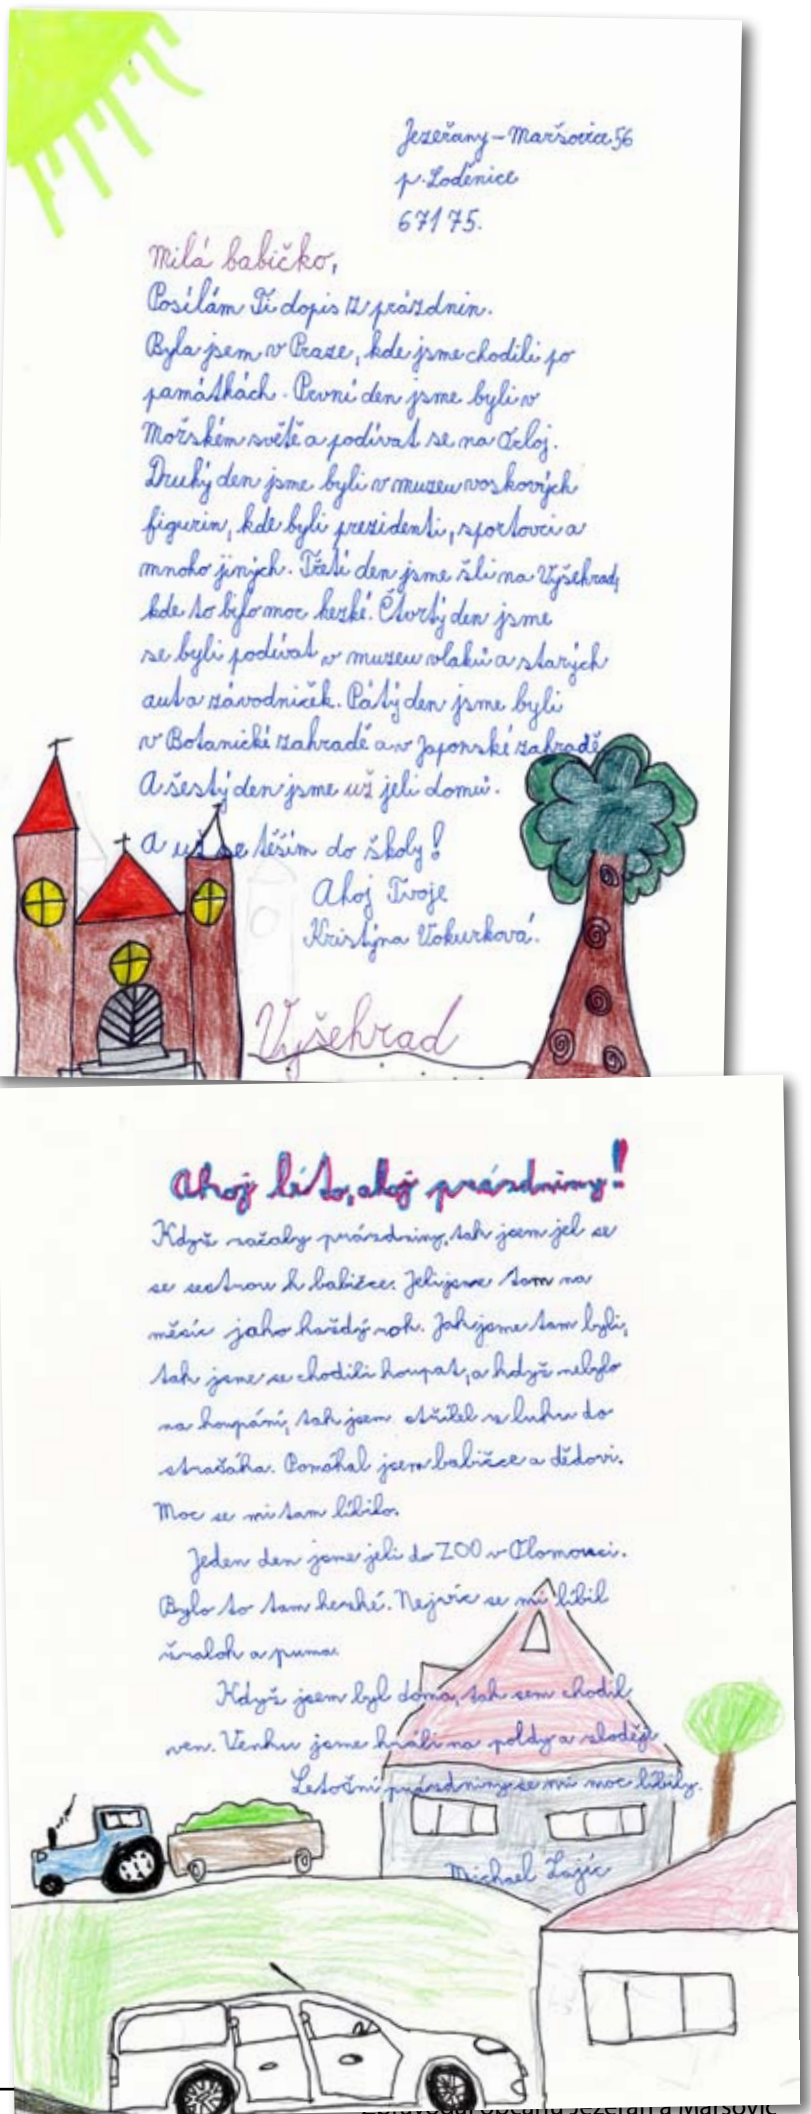 Jezeřany-Maršovice 56
p. Loděnice
671 75.
Milá babičko,
Posílám Ti dopis z prázdnin.
Byla jsem v Praze, kde jsme chodili po
památkách. První den jsme byli v
Mořském světě a podívat se na Orloj.
Druhý den jsme byli v muzeu voskových
figurin, kde byli prezidenti, sportovci a
mnoho jiných. Třetí den jsme šli na Vyšehrad,
kde to bylo moc hezké. Čtvrtý den jsme
se byli podívat v muzeu vlaků a starých
aut a závodniček. Pátý den jsme byli
v Botanické zahradě a v Japonské zahradě.
A šestý den jsme už jeli domů.
A už se těším do školy!
Ahoj Tvoje
Kristýna Vokurková.
Vyšehrad
Ahoj léto, ahoj prázdniny!
Když začaly prázdniny, tak jsem jel se
se sestrou k babičce. Jeli jsme tam na
měsíc jako každý rok. Jak jsme tam byli,
tak jsme se chodili koupat, a když nebylo
na koupání, tak jsem střílel z luku do
strašáka. Pomáhal jsem babičce a dědovi.
Moc se mi tam líbilo.
Jeden den jsme jeli do ZOO v Olomouci.
Bylo to tam hezké. Nejvíc se mi líbil
žralok a puma.
Když jsem byl doma, tak sem chodil
ven. Venku jsme hráli na poldy a zloděje
Letošní prázdniny se mi moc líbily.
Michael Lajíc
Zpravodaj občanů Jezeřan a Maršovic